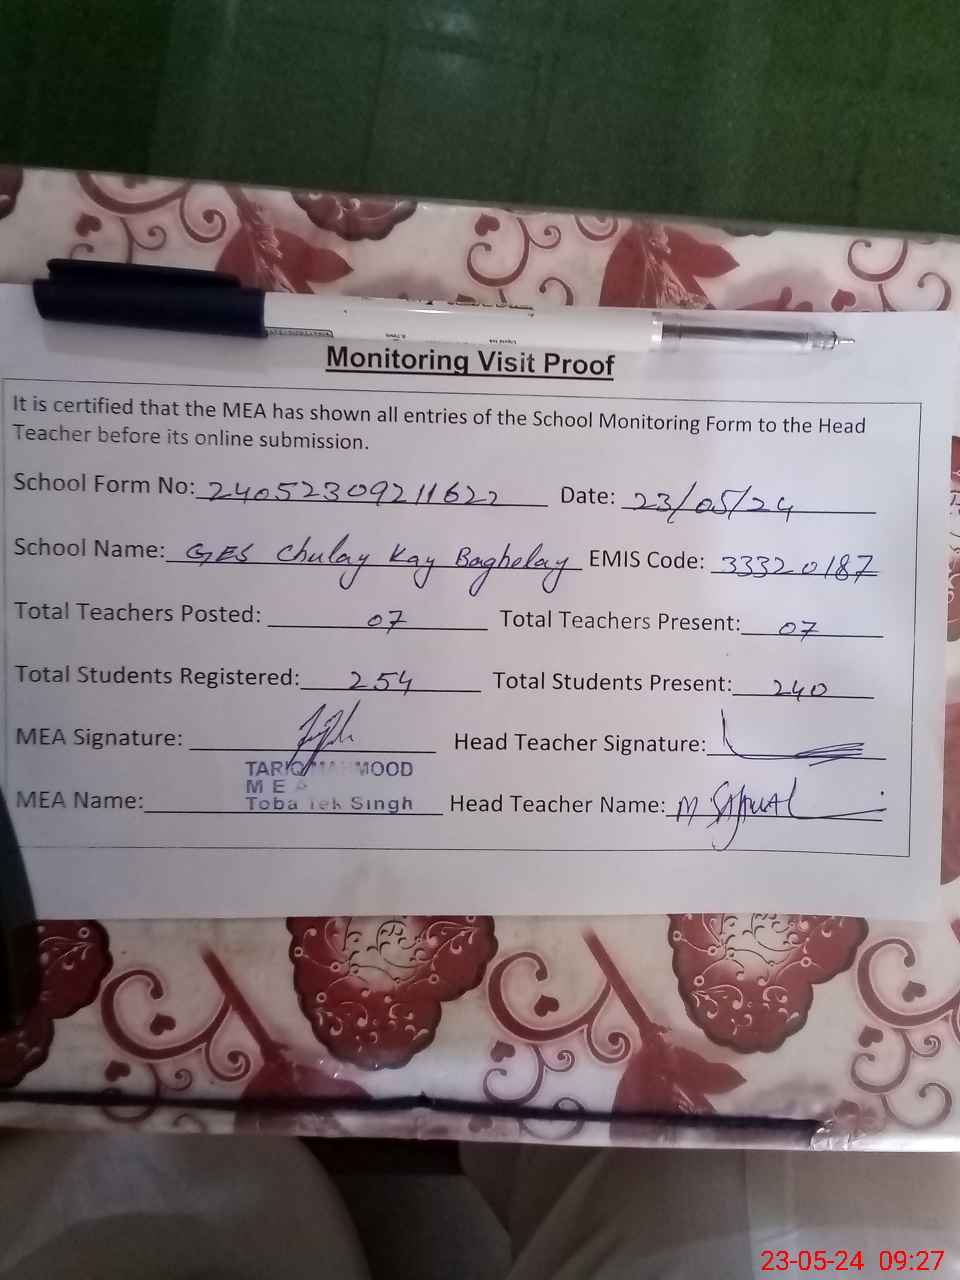 Monitoring Visit Proof
It is certified that the MEA has shown all entries of the School Monitoring Form to the Head
Teacher before its online submission.
School Form No: 24052309211622 Date: 23/05/24
School Name: GES Chulay Kay Baghelay EMIS Code: 33320187
Total Teachers Posted: 07 Total Teachers Present: 07
Total Students Registered: 254 Total Students Present: 240
MEA Signature: Head Teacher Signature:
TARIQ MAHMOOD
MEA
MEA Name: Toba Tek Singh Head Teacher Name: M
23-05-24 09:27